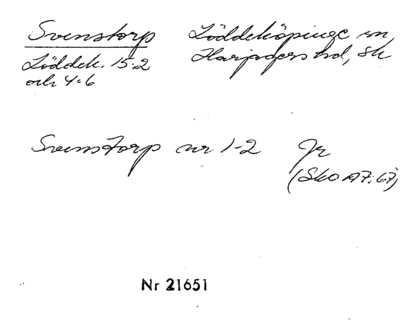 Svenstorp Löddeköpinge sn,
Löddek. 15:2 Harjagers hd, Sk
och 4:6
Svenstorp nr 1-2 Jr
(SkO A7:67)
Nr 21651